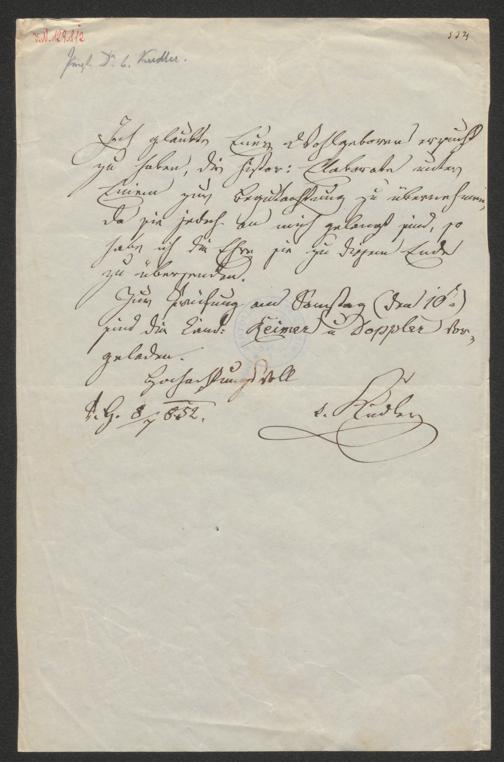 I.N. 129.112
Jos. Dr. v. Kudler.
Ich glaubte Euer Wohlgeboren ersucht
zu haben, die histor: Elaborate unter
Einem zur Begutachtung zu übernehmen,
da sie jedoch an mich gelangt sind, so
habe ich die Ehre sie zu diesem Ende
zu übersenden.
Zur Prüfung am Samstag (den 10t.)
sind die Cand: Keimer u Doppler vor-
geladen.
Hochachtungsvoll
8/7 852.
v. Kudler